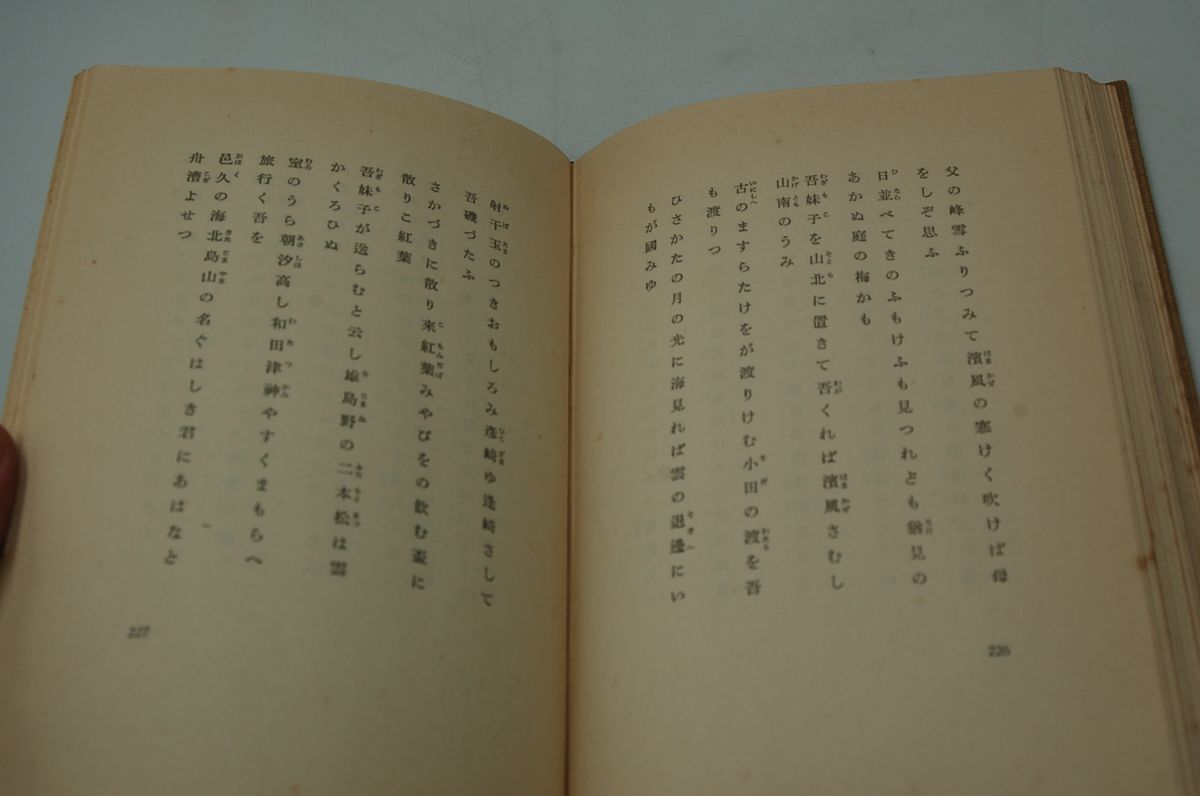 父の峰雪ふりつみて濱風の寒けく吹けば母
をしぞ思ふ
日並べてきのふもけふも見つれども猶見の
あかぬ庭の梅かも
吾妹子を山北に置きて吾くれば濱風さむし
山南のうみ
古のますらたけをが渡りけむ小田の渡を吾
も渡りつ
ひさかたの月の光に海見れば雲の退邊にい
もが國みゆ
226
射干玉のつきおもしろみ彦崎ゆ逢崎さして
吾磯づたふ
さかづきに散り來紅葉みやびをの飮む盃に
散りこ紅葉
吾妹子が送らむと云し雄島野の二本松は雲
かくろひぬ
室のうら朝汐高し和田津神やすくまもらへ
旅行く吾を
邑久の海北島山の名ぐはしき君にあはなと
舟漕よせつ
227